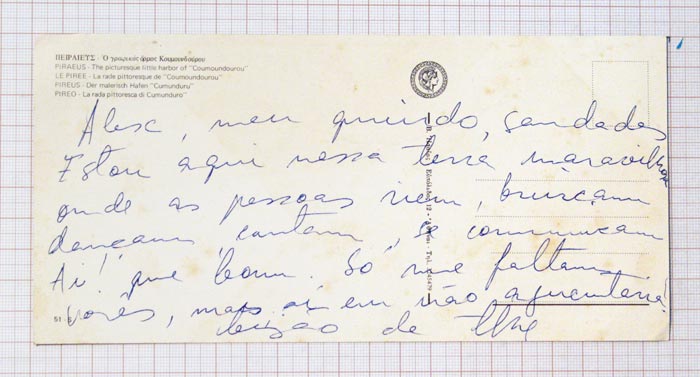 ΠΕΙΡΑΙΕΥΣ - Ὁ γραφικός ὅρμος Κουμουνδούρου
PIRAEUS - The picturesque little harbor of "Coumoundourou"
LE PIREE - La rade pittoresque de "Coumoundourou"
PIREUS - Der malerisch Hafen "Cumunduru"
PIREO - La rada pittoresca di Cumunduro"
Alex, meu querido, saudades
Estou aqui nessa terra maravilhosa
onde as pessoas riem, brincam
dançam, cantam, se comunicam
Ai! que bom. Só me faltam
vocês, mas aí eu não aguentaria!
beijão de
51 - B